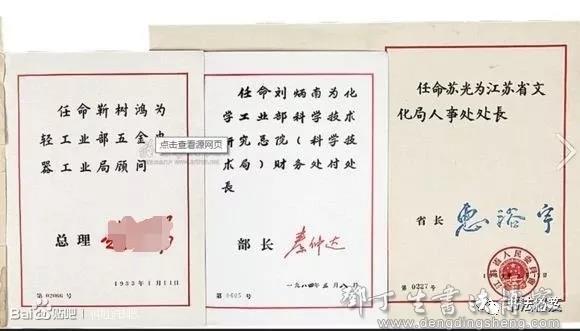 任命靳树鸿为
轻工业部五金电
器工业局顾问
总理
1983年1月11日
第02066号
任命刘炳南为化
学工业部科学技术
研究总院(科学技
术局)财务处付处
長
部长 秦仲达
一九八四年五月八日
第0605号
点击查看源网页
任命苏光为江苏省文
化局人事处处長
省长 惠裕宇
第0227号
Bai贴吧
www.dengdingsheng.com